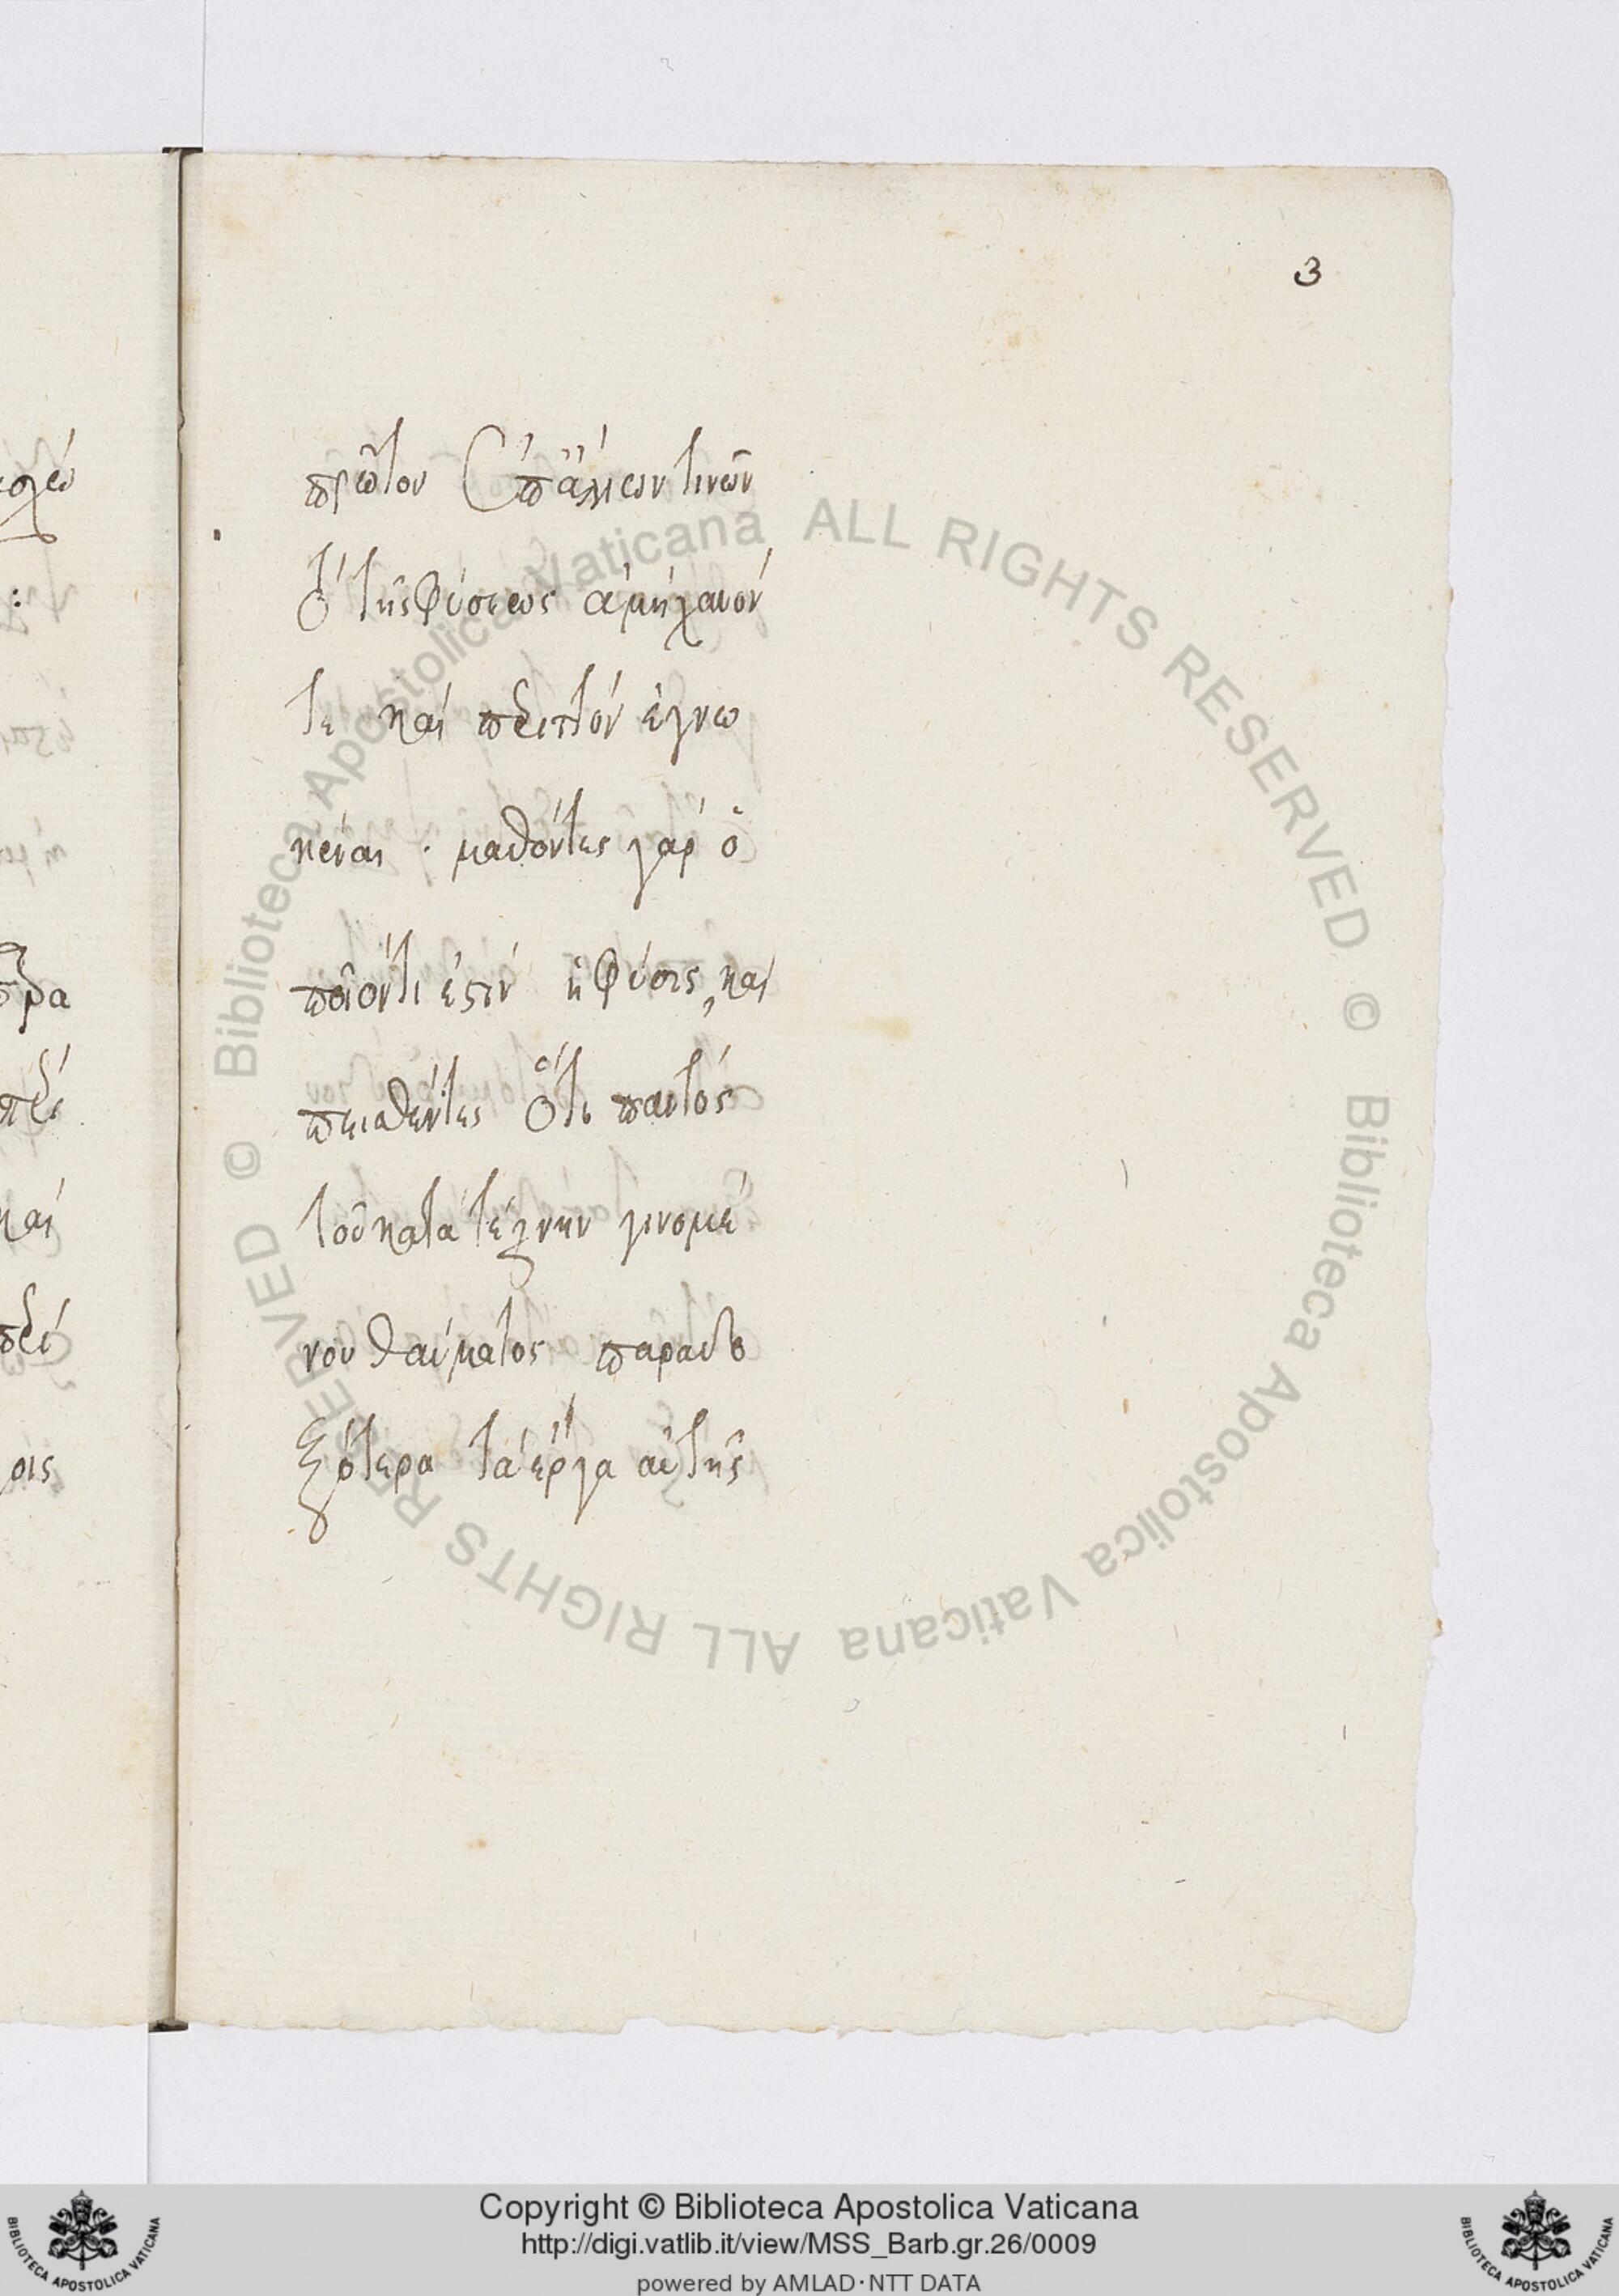 3
πρῶτον ἐπ' ἄλλων τινῶν
τὸ τῆς φύσεως ἀμήχανόν
τε καὶ περιττόν ἐγνω
κέναι . μαθόντες γὰρ ὁ
ποῖόν τι ἐστίν ἡ φύσις, καὶ
πεισθέντες ὅτι παντός
τοῦ κατὰ τέχνην γινομέ
νου θαύματος παραδο
ξότερα τὰ ἔργα αὐτῆς
ρα
περί
καί
περί
οις
© Biblioteca Apostolica Vaticana ALL RIGHTS RESERVED © Biblioteca Apostolica Vaticana ALL RIGHTS RESERVED
BIBLIOTECA APOSTOLICA VATICANA
Copyright © Biblioteca Apostolica Vaticana
http://digi.vatlib.it/view/MSS_Barb.gr.26/0009
powered by AMLAD·NTT DATA
BIBLIOTECA APOSTOLICA VATICANA